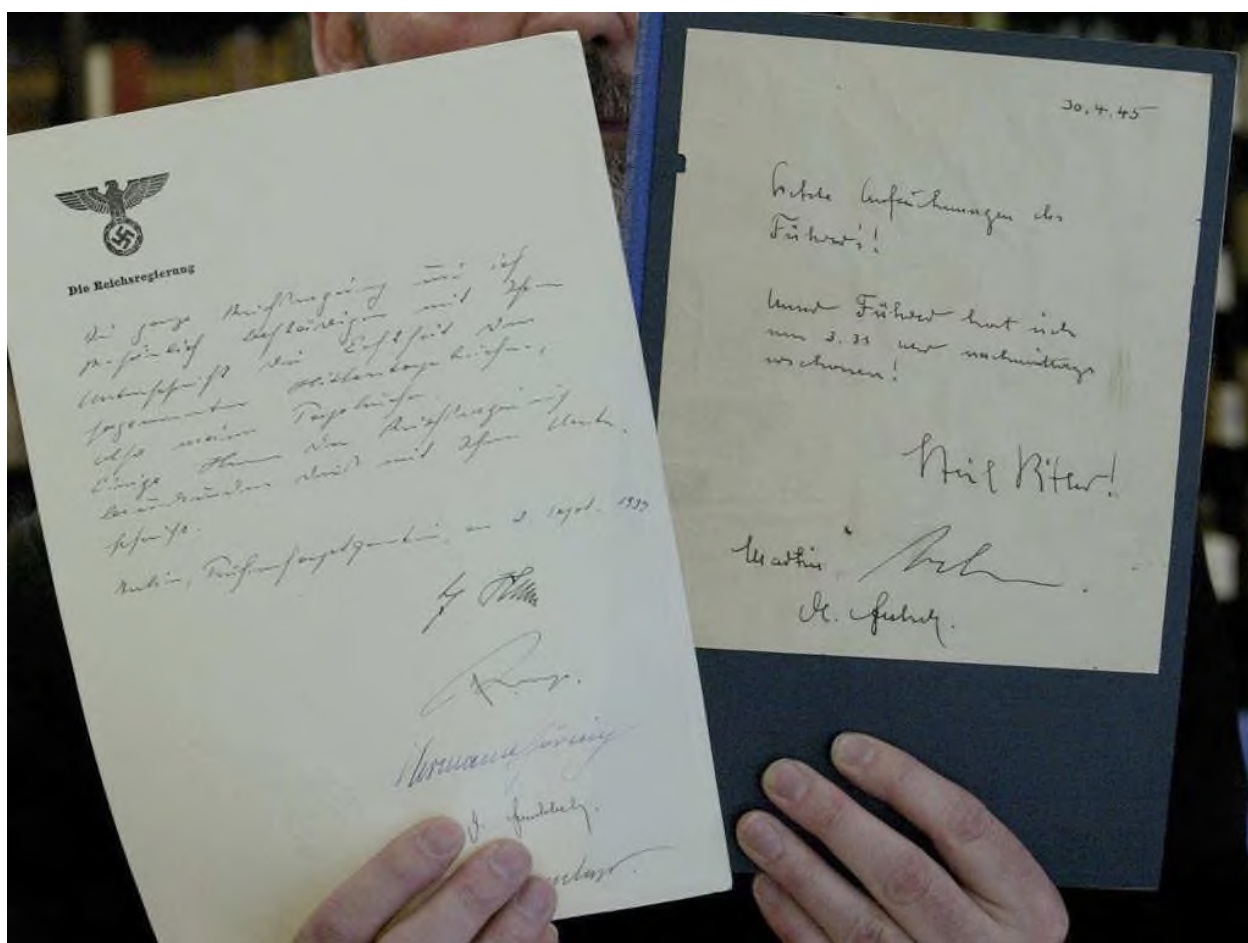 Die Reichsregierung
Die ganze Reichsregierung und ich
persönlich bestätigen mit Ihrer
Unterschrift die Echtheit der
sogenannten Hitlertagebücher,
also meiner Tagebücher.
Einige Herren der Reichsregierung
beurkunden dies mit Ihrer Unter-
schrift.
Berlin, Führerhauptquartier, am Sept. 1939
Hermann Göring
30.4.45
Letzte Aufzeichnungen des
Führer's!
Unser Führer hat sich
um Uhr nachmittags
erschossen!
Heil Hitler!
Martin